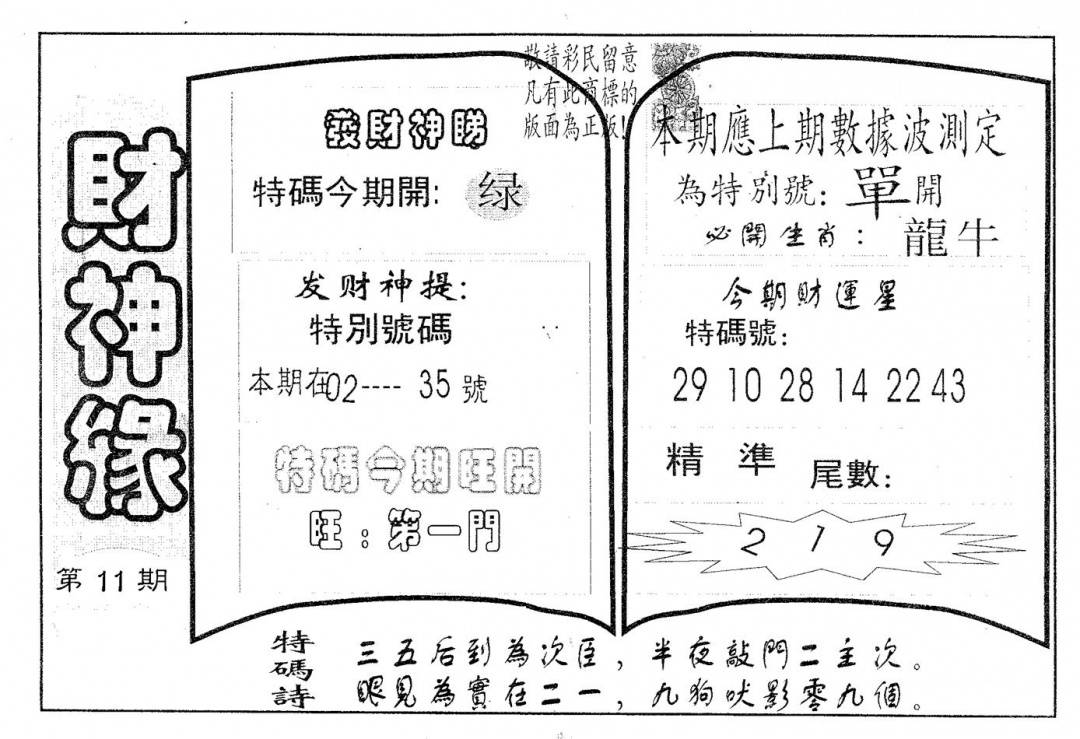 財神緣
第 11 期
敬請彩民留意
凡有此商標的
版面為正版!
發財神睇
特碼今期開: 绿
发财神提:
特別號碼
本期在02---- 35 號
特碼今期旺開
旺：第一門
本期應上期數據波測定
為特別號: 單開
必開生肖： 龍牛
今期財運星
特碼號:
29 10 28 14 22 43
精 準 尾數:
2 1 9
特碼詩
三五后到為次臣，半夜敲門二主次。
眼見為實在二一，九狗吠影零九個。